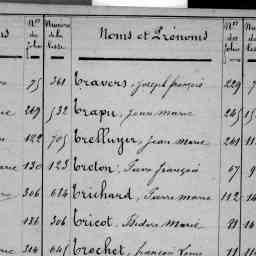 Nos des folios Numéros de la liste. Noms et Prénoms Nos des folios
75 361 Travers, Joseph françois 229
269 532 Trapu, Jean marie 245
122 705 Trelluyer, Jean Marie 261
130 123 Treton, Pierre françois 67
306 614 Trichard, Pierre marie 112
131 306 Tricot, Isidore Marie 21
314 645 Trochet, françois Louis 71